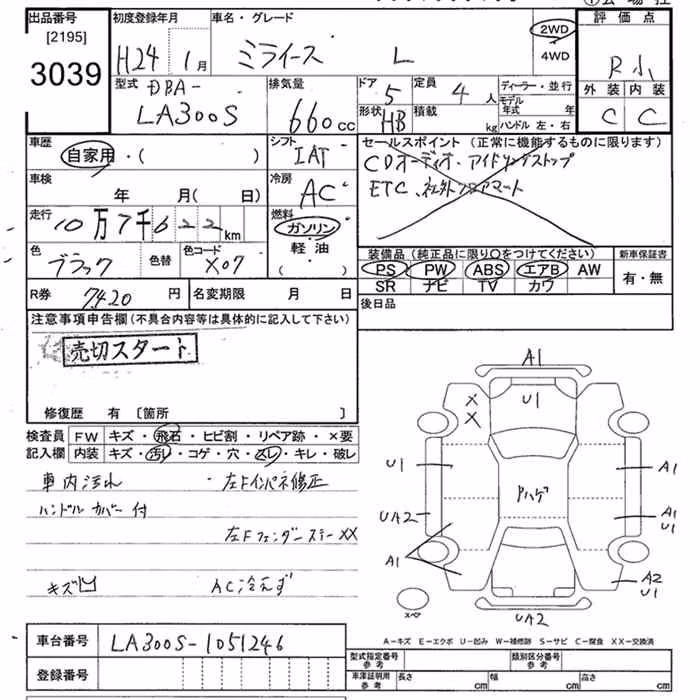 出品番号
[2195]
3039
初度登録年月
H24 1月
車名・グレード
ミライース L
2WD
4WD
評価点
R小
外装 内装
C C
型式 DBA-
LA300S
排気量
660cc
ドア
5
形状
HB
定員
4人
積載
kg
ディーラー・並行
モデル
年式 年
ハンドル 左・右
車歴
自家用・( )
シフト
IAT
セールスポイント (正常に機能するものに限ります)
CDオーディオ・アイドリングストップ
ETC、社外フロアマット
車検
年 月( 日)
冷房
AC
走行
10万7千622km
燃料
ガソリン
軽・油
( )
色
ブラック
色替
色コード
X07
装備品 (純正品に限り○をつけてください)
PS PW ABS エアB AW
SR ナビ TV カワ
新車保証書
有・無
R券 7420円
名変期限 月 日
後日品
注意事項申告欄(不具合内容等は具体的に記入して下さい)
売切スタート
修復歴 有 〔箇所 〕
検査員
記入欄
FW キズ・飛石・ヒビ割・リペア跡・×要
内装 キズ・汚レ・コゲ・穴・スレ・キレ・破レ
車内汚れ 左Fインパネ修正
ハンドルカバー付
左FフェンダーステーXX
キズ凹 AC冷えず
A1
U1
X
X
U1
A1
Pハゲ
UA2
A1
U1
A1
A2
U1
スペア
UA2
A-キズ E-エクボ U-凹み W-補修跡 S-サビ C-腐食 XX-交換済
車台番号 LA300S-1051246
登録番号
型式指定番号
参考
類別区分番号
参考
車庫証明用
参考
長さ cm 幅 cm 高さ cm